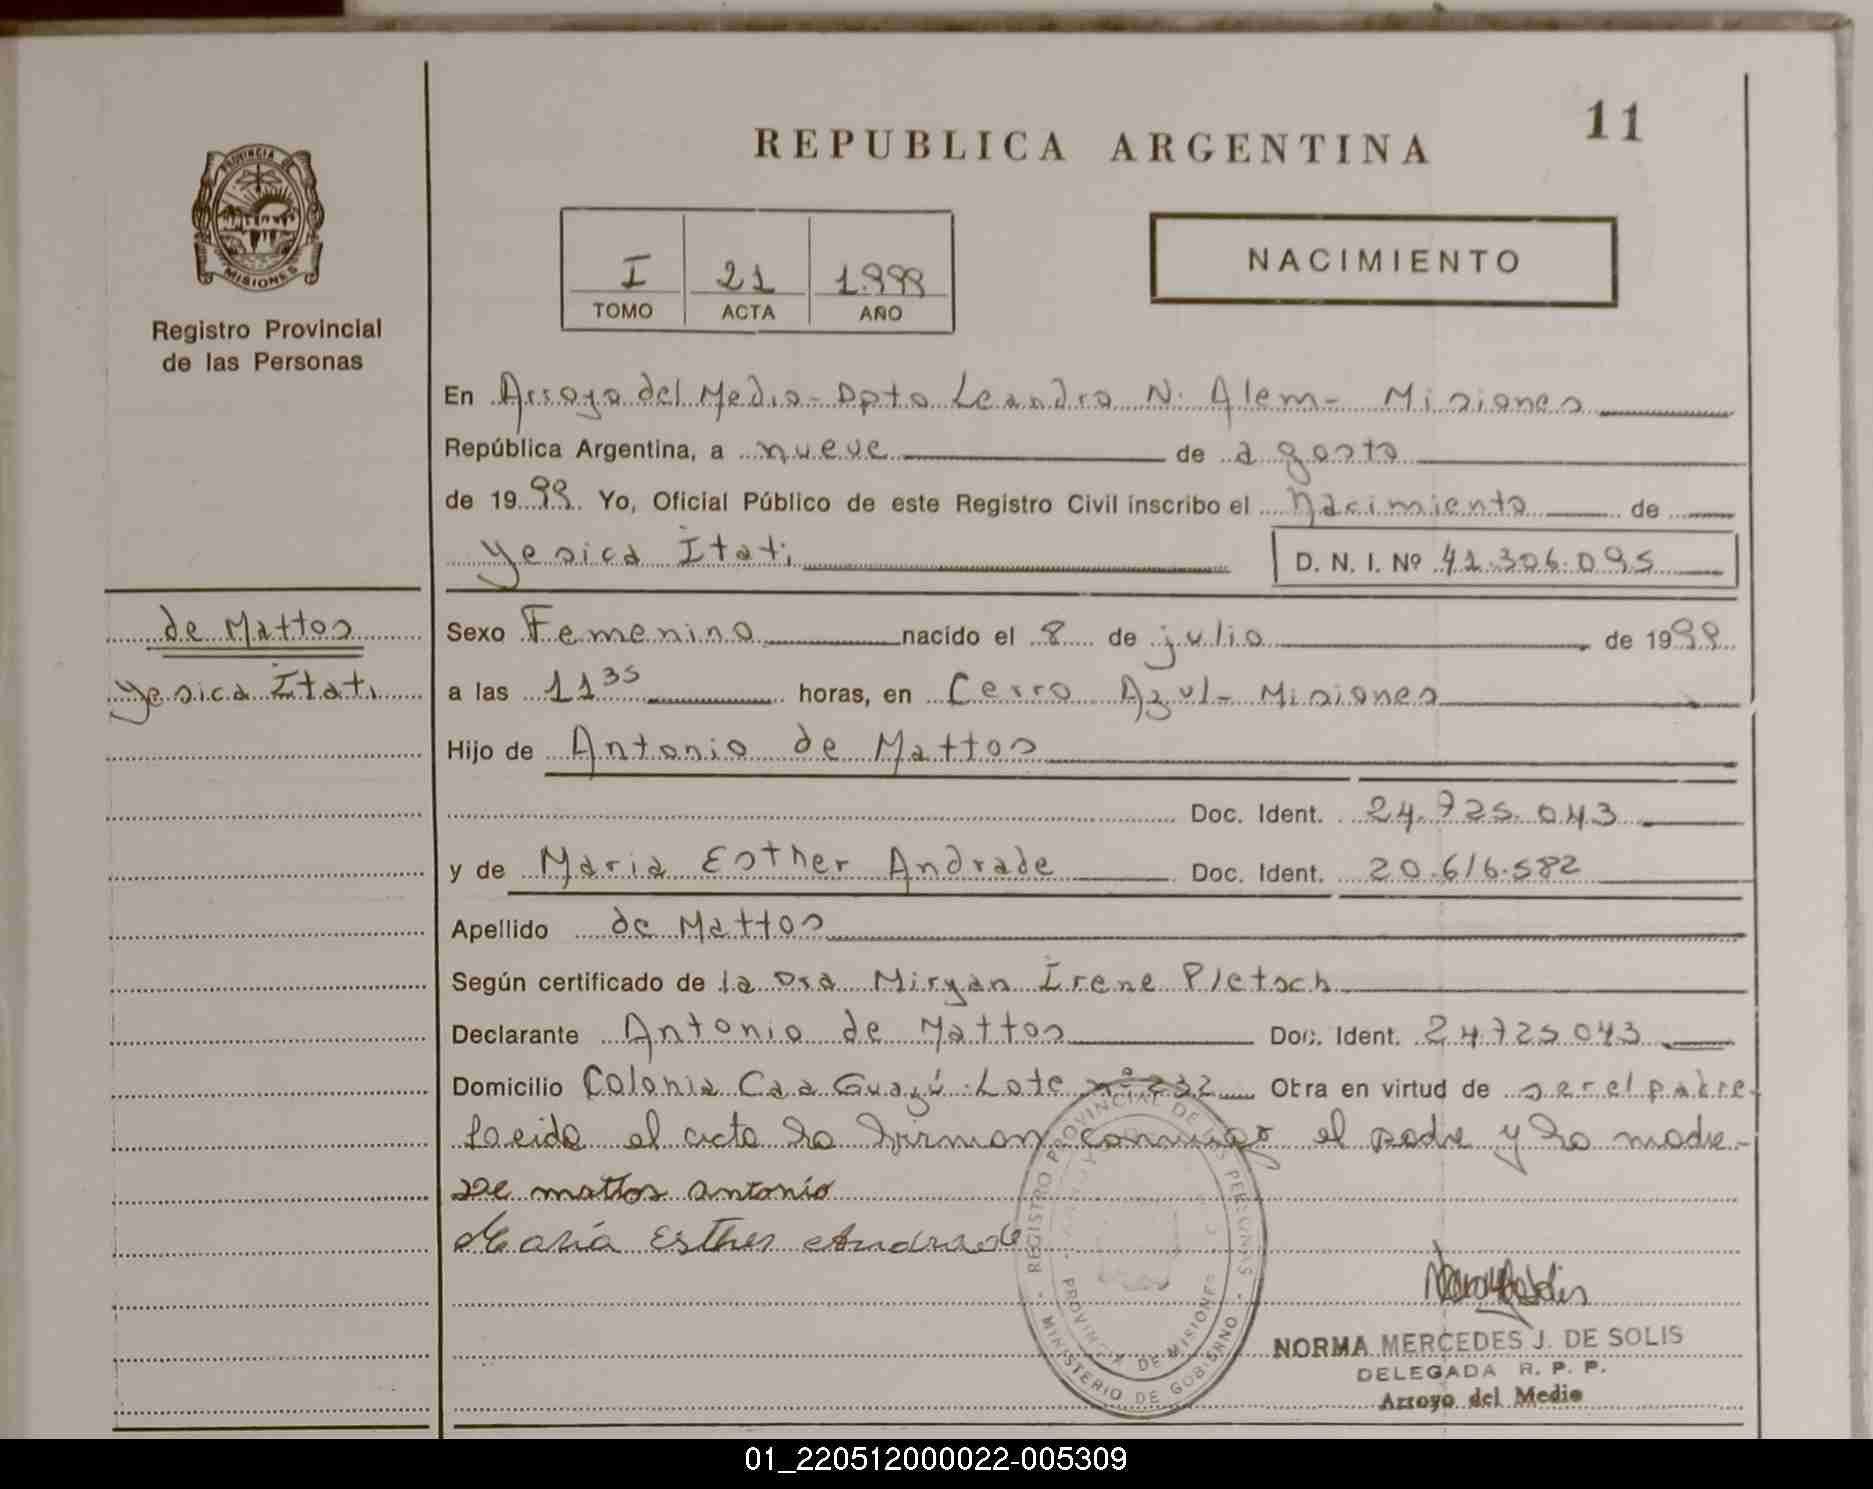 11
REPUBLICA ARGENTINA
PROVINCIA DE
MISIONES
Registro Provincial
de las Personas
I 21 1.999
TOMO ACTA AÑO
NACIMIENTO
En Arroyo del Medio - Dpto Leandro N. Alem - Misiones
República Argentina, a nueve de agosto
de 1999. Yo, Oficial Público de este Registro Civil inscribo el Nacimiento de
Yesica Itati
D. N. I. Nº 41.306.095
de Mattos
Yesica Itati
Sexo Femenino nacido el 8 de julio de 1999
a las 11 35 horas, en Cerro Azul - Misiones
Hijo de Antonio de Mattos
Doc. Ident. 24.725.043
y de Maria Esther Andrade Doc. Ident. 20.616.582
Apellido de Mattos
Según certificado de la Dra Miryan Irene Pletsch
Declarante Antonio de Mattos Doc. Ident. 24725043
Domicilio Colonia Caa Guazú - Lote nº 232 Obra en virtud de ser el padre-
Leida el acta la firman conmigo el padre y la madre-
De mattos antonio
Maria Esther Andrade
REGISTRO PROVINCIAL DE LAS PERSONAS
PROVINCIA DE MISIONES
MINISTERIO DE GOBIERNO
NORMA MERCEDES J. DE SOLIS
DELEGADA R. P. P.
Arroyo del Medio
01_220512000022-005309